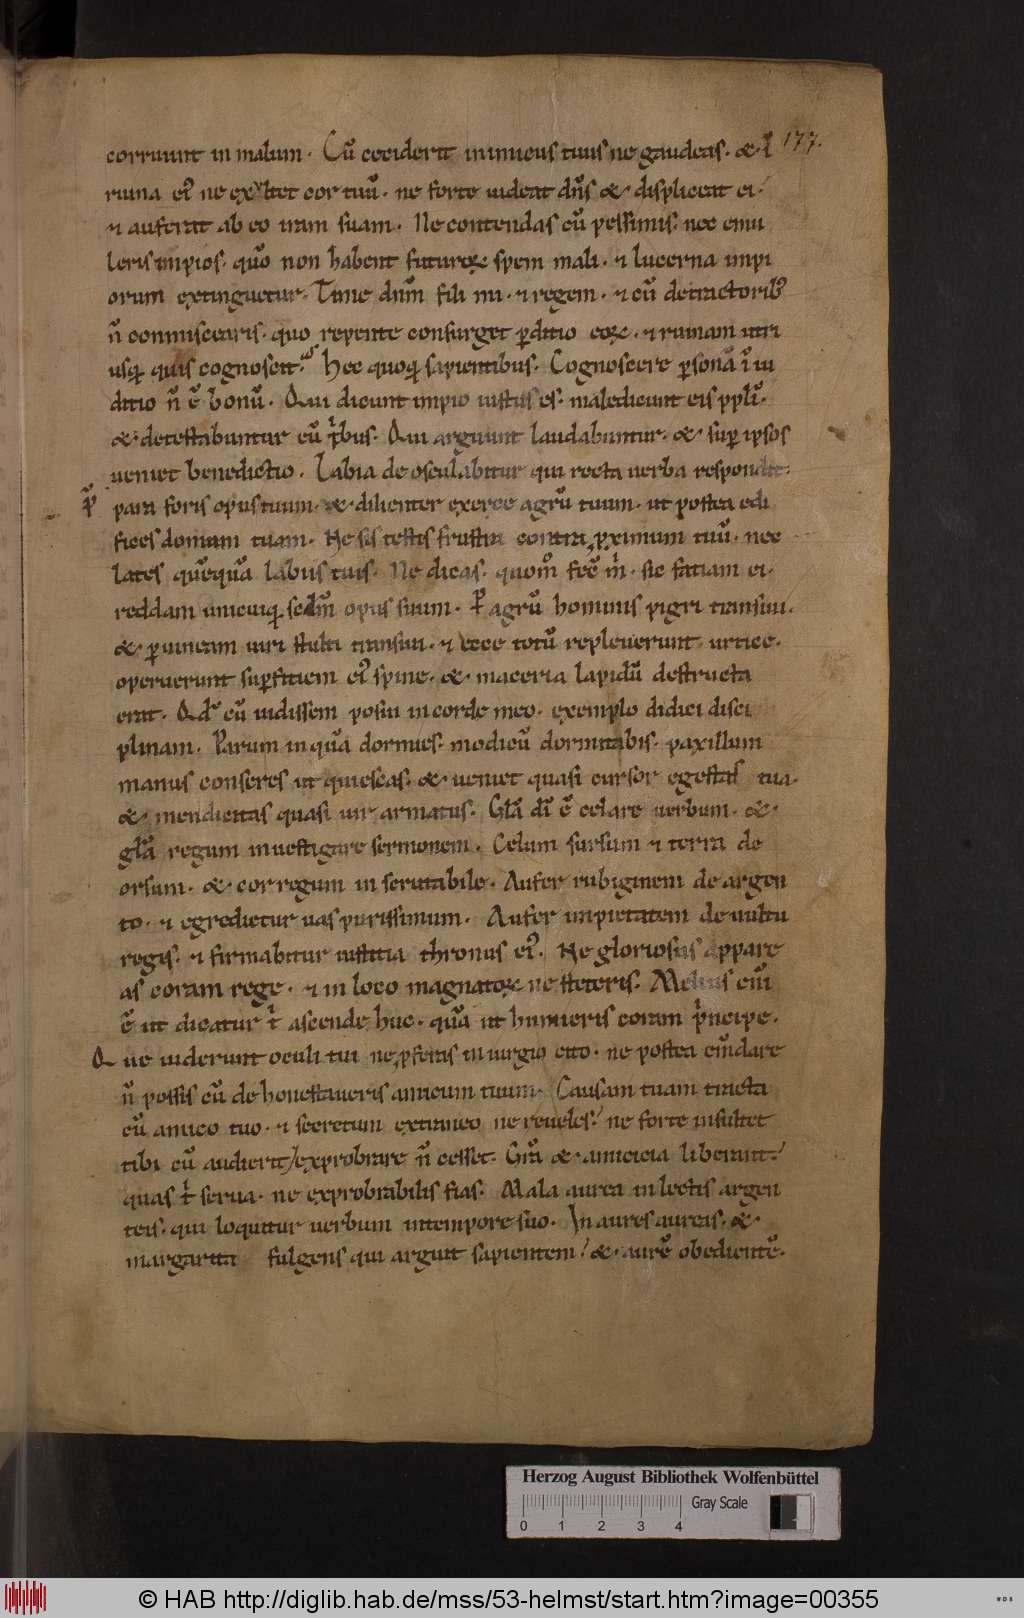 177.
corruunt in malum. Cū ceciderit inimicus tuus ne gaudeas. & ī
ruina ei⁹ ne exultet cor tuū. ne forte uideat dn̄s & displiceat ei.
⁊ auferat ab eo iram suam. Ne contendas cū pessimis. nec emu
leris impios. quō non habent futuroꝝ spem mali. ⁊ lucerna impi
orum extinguetur. Time dnm̄ fili mi. ⁊ regem. ⁊ cū detractorib⁹
n̄ commiscearis. quo repente consurget ꝑditio eoꝝ. ⁊ ruinam utri
usqꝫ quis cognoscit. Hec quoqꝫ sapientibus. Cognoscere ꝑsonā ī iu
ditio n̄ ē bonū. Qui dicunt impio iustus es. maledicunt eis ppli.
& detestabuntur eū t'bus. Qui arguunt laudabuntur. & suꝑ ipsos
ueniet benedictio. Labia de osculabitur qui recta uerba respondit.
para foris opus tuum. & dilienter exerce agrū tuum. ut postea edi
fices domum tuam. Ne sis testis frustra contra ꝓximum tuū. nec
lates quēquā labiis tuis. Ne dicas. quom̊ fec̄ m'. sic fatiam ei.
reddam unicuiqꝫ scdm̄ opus suum. P agrū hominis pigri transiui.
& ꝑ uineam uiri stulti transiui. ⁊ ecce totū repleuerunt urtice.
operuerunt suꝑfitiem ei⁹ spine. & maceria lapidū destructa
erat. Qd̄ cū uidissem posui in corde meo. exemplo didici disci
plinam. Parum inquā dormies. modicū dormitabis. paxillum
manus conseres ut quiescas. & ueniet quasi cursor egestas tua.
& mendicitas quasi uir armatus. Glā dī ē celare uerbum. &
glā regum inuestigare sermonem. Celum sursum ⁊ terra de
orsum. & cor regum inscrutabile. Aufer rubiginem de argen
to. ⁊ egredietur uas purissimum. Aufer impietatem de uultu
regis. ⁊ firmabitur iustitia thronus ei⁹. Ne gloriosus appare
as coram rege. ⁊ in loco magnatoꝝ ne steteris. Melius enī
ē ut dicatur t' ascende huc. quā ut humieris coram p'ncipe.
Que uiderunt oculi tui ne ꝓferas in iurgio cito. ne postea em̄dare
n̄ possis cū dehonestaueris amicum tuum. Causam tuam tracta
cū amico tuo. ⁊ secretum extraneo ne reueles. ne forte insultet
tibi cū audierit/exprobrare n̄ cesset. Grā & amicicia liberant.
quas t' serua. ne exprobrabilis fias. Mala aurea in lectis argen
teis. qui loquitur uerbum in tempore suo. In aures aureis. &
margarita fulgens qui arguit sapientem. & aurē obedientē.
Herzog August Bibliothek Wolfenbüttel
Gray Scale
0 1 2 3 4
© HAB http://diglib.hab.de/mss/53-helmst/start.htm?image=00355